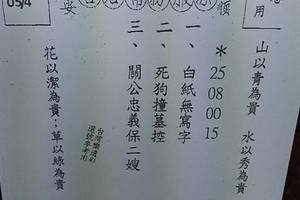 05/4
用
山以青為貴 水以秀為貴
順
*25 08 00 15
一、白紙無寫字
二、死狗撞墓控
三、關公忠義保二嫂
台灣樂透的
花以潔為貴；草以綠為貴